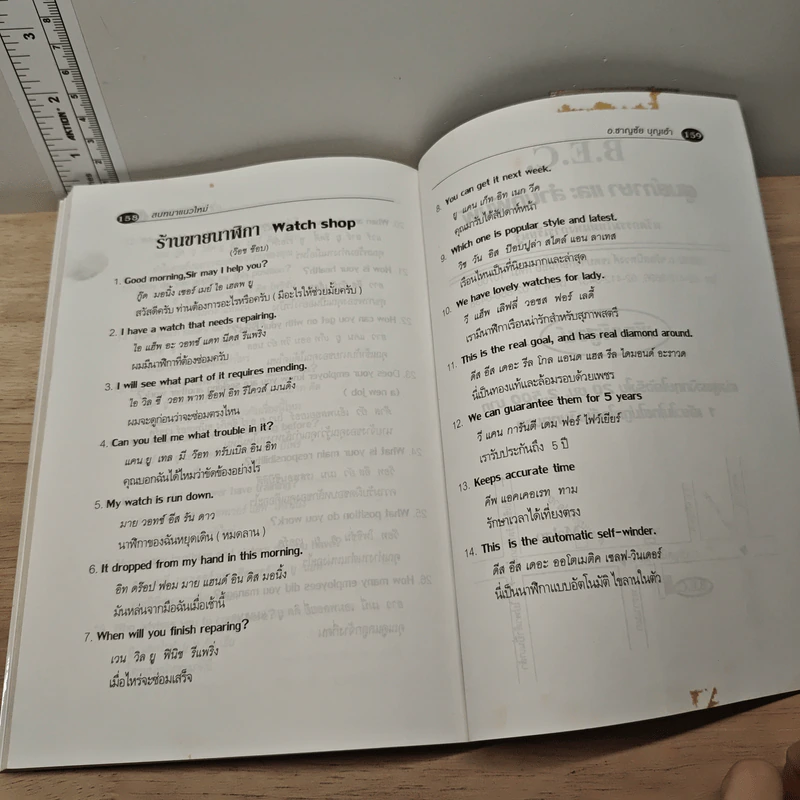 158 สนทนาแนวใหม่
ร้านขายนาฬิกา Watch shop
(ว๊อช ช๊อบ)
1. Good morning,Sir may I help you?
กู๊ด มอนิ้ง เซอร์ เมย์ ไอ เฮลพ ยู
สวัสดีครับ ท่านต้องการอะไรหรือครับ ( มีอะไรให้ช่วยมั้ยครับ )
2. I have a watch that needs repairing.
ไอ แฮ็พ อะ วอทช์ แดท นีดส รีแพริ่ง
ผมมีนาฬิกาที่ต้องซ่อมครับ
3. I will see what part of it requires mending.
ไอ วิล ซี วอท พาท อ๊อฟ อิท รีไควส์ เมนดิ้ง
ผมจะดูก่อนว่าจะซ่อมตรงไหน
4. Can you tell me what trouble in it?
แคน ยู เทล มี ว๊อท ทรับเบิล อิน อิท
คุณบอกฉันได้ไหมว่าขัดข้องอย่างไร
5. My watch is run down.
มาย วอทช์ อีส รัน ดาว
นาฬิกาของฉันหยุดเดิน ( หมดลาน )
6. It dropped from my hand in this morning.
อิท ดร๊อป ฟอม มาย แฮนด์ อิน ดิส มอนิ้ง
มันหล่นจากมือฉันเมื่อเช้านี้
7. When will you finish reparing?
เวน วิล ยู ฟินิช รีแพริ่ง
เมื่อไหร่จะซ่อมเสร็จ
อ.ชาญชัย บุญเฮ้า 159
8. You can get it next week.
ยู แคน เก็ท อิท เนก วีค
คุณมารับได้สัปดาห์หน้า
9. Which one is popular style and latest.
วิช วัน อิส ป๊อบปูล่า สไตล์ แอน ลาเทส
เรือนไหนเป็นที่นิยมมากและล่าสุด
10. We have lovely watches for lady.
วี แฮ็พ เลิฟลี่ วอชส ฟอร์ เลดี้
เรามีนาฬิกาเรือนน่ารักสำหรับสุภาพสตรี
11. This is the real goal, and has real diamond around.
ดีส อีส เดอะ รีล โกล แอนด แฮส รีล ไดมอนด์ อะราวด
นี่เป็นทองแท้และล้อมรอบด้วยเพชร
12. We can guarantee them for 5 years
วี แคน การันตี เดม ฟอร์ ไฟว์เยียร์
เรารับประกันถึง 5 ปี
13. Keeps accurate time
คีพ แอคเคอเรท ทาม
รักษาเวลาได้เที่ยงตรง
14. This is the automatic self-winder.
ดีส อีส เดอะ ออโตเมติค เซลฟ-วินเดอร์
นี่เป็นนาฬิกาแบบอัตโนมัติ ไขลานในตัว